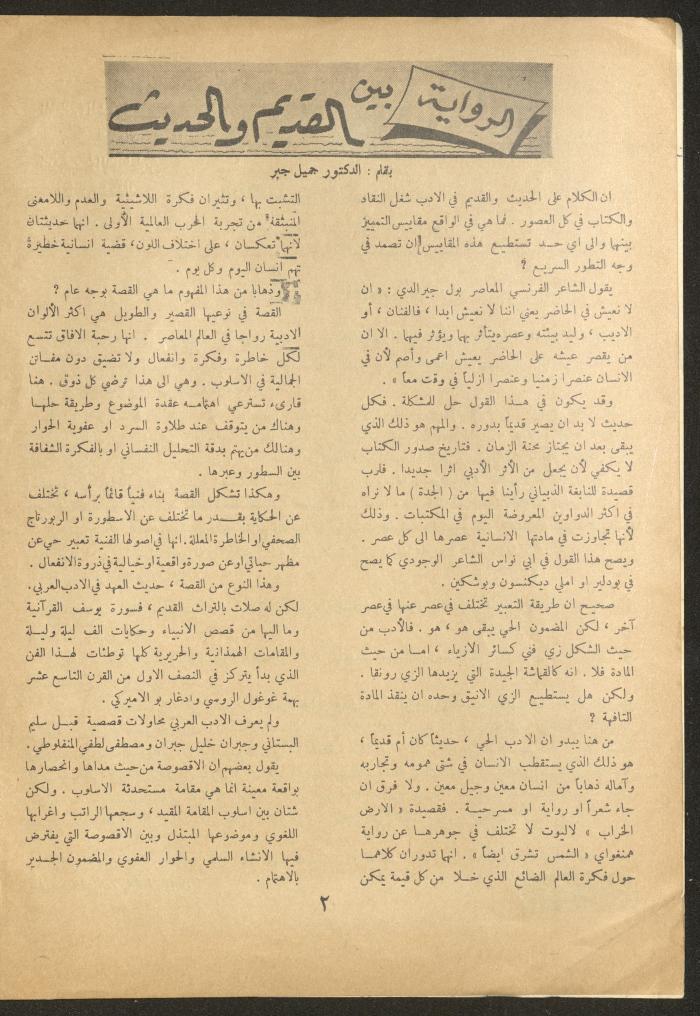 الرواية بين القديم والحديث
بقلم : الدكتور جميل جبر
ان الكلام على الحديث والقديم في الادب شغل النقاد
والكتاب في كل العصور . فما هي في الواقع مقاييس التمييز
بينها والى اي حد تستطيع هذه المقاييس ان تصمد في
وجه التطور السريع ؟
يقول الشاعر الفرنسي المعاصر بول جيرالدي : « ان
لا نعيش في الحاضر يعني اننا لا نعيش ابدا ، فالفنان ، أو
الاديب ، وليد بيئته وعصره يتأثر بها ويؤثر فيها . الا ان
من يقصر عيشه على الحاضر يعيش اعمى وأصم لأن في
الانسان عنصرا زمنيا وعنصرا ازلياً في وقت معاً » .
وقد يكون في هذا القول حل للمشكلة . فكل
حديث لا بد ان يصير قديماً بدوره . والمهم هو ذلك الذي
يبقى بعد ان يجتاز محنة الزمان . فتاريخ صدور الكتاب
لا يكفي لأن يجعل من الأثر الأدبي اثرا جديدا . فلرب
قصيدة للنابغة الذبياني رأينا فيها من ( الجدة ) ما لا نراه
في اكثر الدواوين المعروضة اليوم في المكتبات . وذلك
لأنها تجاوزت في مادتها الانسانية عصرها الى كل عصر .
ويصح هذا القول في ابي نواس الشاعر الوجودي كما يصح
في بودلير او املي ديكنسون وبوشكين .
صحيح ان طريقة التعبير تختلف في عصر عنها في عصر
آخر ، لكن المضمون الحي يبقى هو ، هو . فالأدب من
حيث الشكل زي فني كسائر الازياء ، اما من حيث
المادة فلا . انه كالقماشة الجيدة التي يزيدها الزي رونقا .
ولكن هل يستطيع الزي الانيق وحده ان ينقذ المادة
التافهة ؟
من هنا يبدو ان الادب الحي ، حديثاً كان أم قديماً ،
هو ذلك الذي يستقطب الانسان في شتى همومه وتجاربه
وآماله ذهاباً من انسان معين وجيل معين . ولا فرق ان
جاء شعراً او رواية او مسرحية . فقصيدة « الارض
الخراب » لاليوت لا تختلف في جوهرها عن رواية
همنغواي « الشمس تشرق ايضاً » . انها تدوران كلاهما
حول فكرة العالم الضائع الذي خلا من كل قيمة يمكن
التشبث بها ، وتثيران فكرة اللاشيئية والعدم واللامعنى
المنبثقة من تجربة الحرب العالمية الأولى . انها حديثتان
لأنها تعكسان ، على اختلاف اللون، قضية انسانية خطيرة
تهم انسان اليوم وكل يوم .
وذهابا من هذا المفهوم ما هي القصة بوجه عام ؟
القصة في نوعيها القصير والطويل هي اكثر الألوان
الادبية رواجا في العالم المعاصر . انها رحبة الافاق تتسع
لكل خاطرة وفكرة وانفعال ولا تضيق دون مفاتن
الجمالية في الاسلوب . وهي الى هذا ترضي كل ذوق . هنا
قارىء تسترعي اهتمامه عقدة الموضوع وطريقة حلها
وهناك من يتوقف عند طلاوة السرد او عفوية الحوار
وهنالك من يهتم بدقة التحليل النفساني او بالفكرة الشفافة
بين السطور وعبرها .
وهكذا تشكل القصة بناء فنياً قائماً برأسه ، تختلف
عن الحكاية بقدر ما تختلف عن الاسطورة او الربورتاج
الصحفي او الخاطرة المعللة. انها في اصولها الفنية تعبير حي عن
مظهر حياتي او عن صورة واقعية او خيالية في ذروة الانفعال .
وهذا النوع من القصة ، حديث العهد في الادب العربي.
لكن له صلات بالتراث القديم ، فسورة يوسف القرآنية
وما اليها من قصص الانبياء وحكايات الف ليلة وليلة
والمقامات الهمذانية والحريرية كلها توطئات لهذا الفن
الذي بدأ يتركز في النصف الاول من القرن التاسع عشر
بهمة غوغول الروسي وادغار بو الاميركي .
ولم يعرف الادب العربي محاولات قصصية قبل سليم
البستاني وجبران خليل جبران ومصطفى لطفي المنفلوطي.
يقول بعضهم ان الاقصوصة من حيث مداها وانحصارها
بواقعة معينة انما هي مقامة مستحدثة الاسلوب . ولكن
شتان بين اسلوب المقامة المقيد ، وسجعها الراتب واغرابها
اللغوي وموضوعها المبتذل وبين الاقصوصة التي يفترض
فيها الانشاء السلس والحوار العفوي والمضمون الجدير
بالاهتمام .
٢